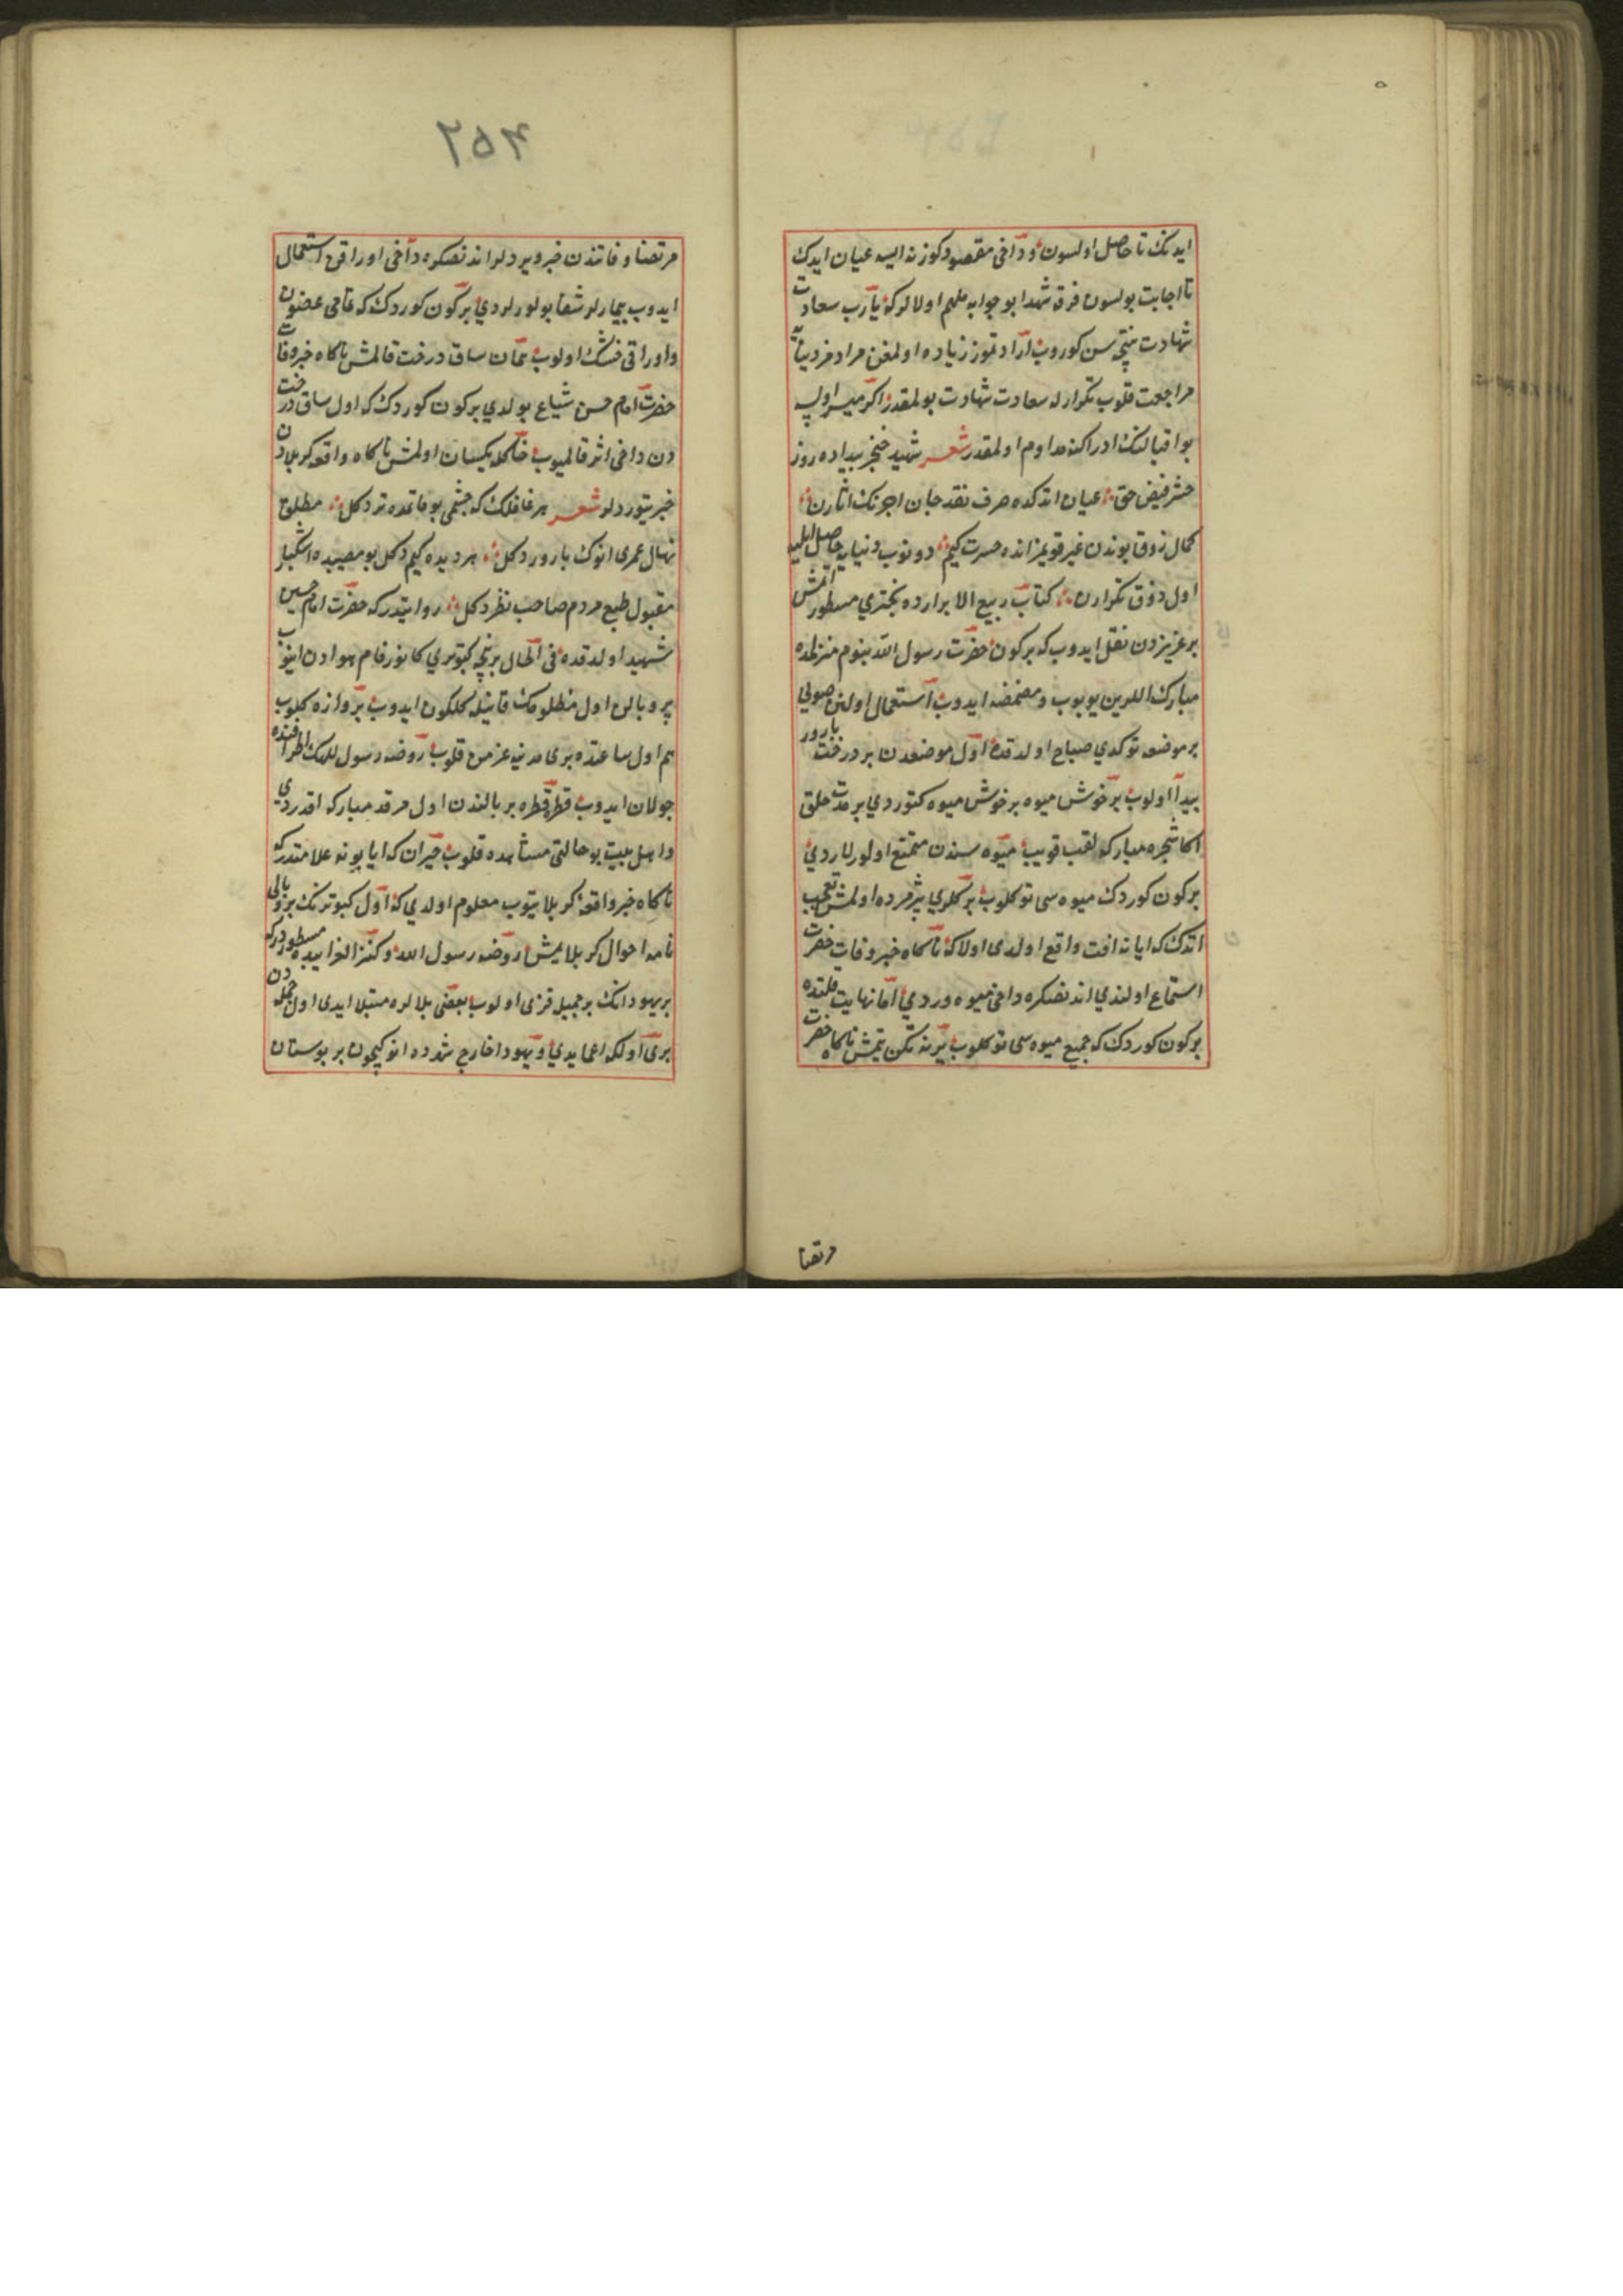 ایدنک تا حاصل اولسون و داخی مقصود کوزنه ایسه عیان ایدک
تا اجابت بولسون فرق شهدا بو جوابه ملهم اولالر که یا رب سعادت
شهادت نتیجه سن کوروب آرادتموز زیاده اولمغن مراد مز دنیایه
مراجعت قلوب تکرار له سعادت شهادت بولمقدر اکر میسر اولیه
بو اقبالنک ادراکنه مداوم اولمقدر شعر شهید خنجر بیداده روز
حشر فیض حق عیان اتدکده صرف نقد جان اجرنک اثارن
کمال ذوقا بوندن غیر قویمز انده حسرت کیم دونوب دنیایه حاصل ایلیه
اول ذوق تکرارن کتاب ربیع الابرارده بختری مسطور اتمش
بر عزیزدن نقل ایدوب که بر کون حضرت رسول الله بنوم منزلمده
مبارک اللرین یویوب و مضمضه ایدوب استعمال اولنن صویی
بر موضعه توکدی صباح اولدقده اول موضعدن بر درخت بارور
پیدا اولوب بر خوش میوه بر خوش میوه کتوردی بر مدت خلق
اکا شجره مبارکه لقب قویب میوه سندن متمتع اولورلاردی
بر کون کوردک میوه سی توکلوب برکلری پژمرده اولمش تعجب
اتدک که ایا نه افت واقع اولدی اولا که ناکاه خبر وفات حضرت
استماع اولندی اندنصکره داخی میوه ورردی اما نهایت قلتده
بر کون کوردک که جمیع میوه سی توکلوب یرنه تکن بتمش ناکاه حضرت
مرتضا
۲۵۴
مرتضا وفاتندن خبر ویردلر اندنصکره داخی اوراقن استعمال
ایدوب بیمارلر شفا بولورلردی بر کون کوردک که تمامی عضون
و اوراقی خشک اولوب همان ساق درخت قالمش ناکاه خبر وفات
حضرت امام حسن شیاع بولدی بر کون کوردک که اول ساق درخت
دن داخی اثر قالمیوب خاکله یکسان اولمش ناکاه واقعه کربلادن
خبر یتوردلر شعر هر غافلک که چشمی بو ماتمده تر دکل مطلق
نهال عمری انوک بارور دکل هر دیده کیم دکل بو مصیبه اشکبار
مقبول طبع مردم صاحب نظر دکل روایتدر که حضرت امام حسین
شهید اولدقده فی الحال بر نچه کبوتری کافورفام هوادن اینوب
پر و بالن اول مظلومک قانیله کلکون ایدوب پروازه کلوب
هم اول ساعتده بری مدینیه عزمن قلوب روضه رسول اللهک اطرافنده
جولان ایدوب قطره قطره پر بالندن اول مرقد مبارکه اقدردی
و اهل بیت بو حالتی مشاهده قلوب حیران که ایا بو نه علامتدر که
ناکاه خبر واقعه کربلا یتوب معلوم اولدی که اول کبوترنک پر و بالی
نامه احوال کربلا یمش روضه رسول الله و کنز الغرایبده مسطوردر که
بر یهودانک بر جمیل قزی اولوب بعضی بلالره مبتلا ایدی اول جمله دن
بری اولکه اعما یدی و یهودا خارج شهرده انوکیچون بر بوستان